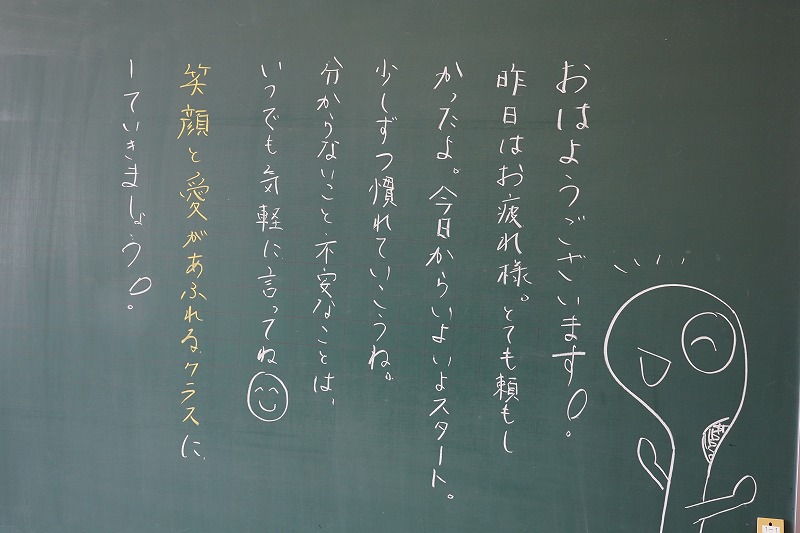 おはようございます!
昨日はお疲れ様。とても頼もし
かったよ。今日からいよいよスタート。
少しずつ慣れていこうね。
分からないこと不安なことは、
いつでも気軽に言ってね
笑顔と愛があふれるクラスに
していきましょう!